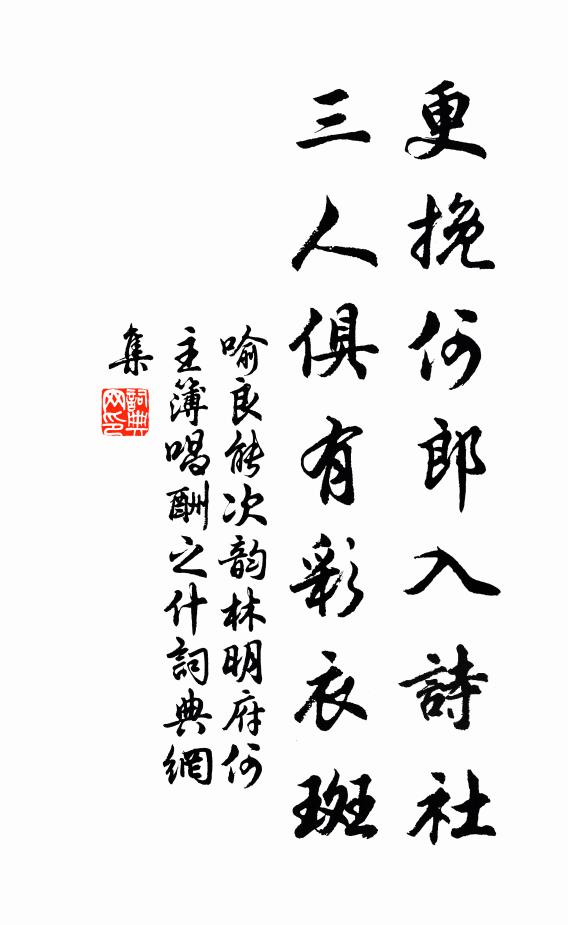 更挽何郎入詩社
三人俱有彩衣斑
喻良能次韵林明府何
主簿唱酬之什詞典網
集
詞典
网印